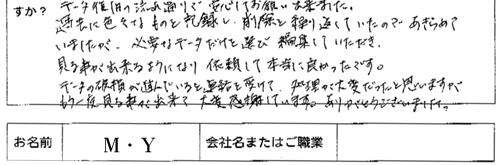 すか？
データ復旧の流れ通りで安心してお願い出来ました。
過去に色々なものを記録し、削除を繰り返していたのであきらめて
いましたが、必要なデータだけを選び編集していただき、
見る事が出来るようになり依頼して本当に良かったです。
データの破損が進んでいると連絡を受けて、処理が大変だったと思いますが
もう一度見る事が出来て大変感謝しています。ありがとうございました。
お名前 M・Y 会社名またはご職業